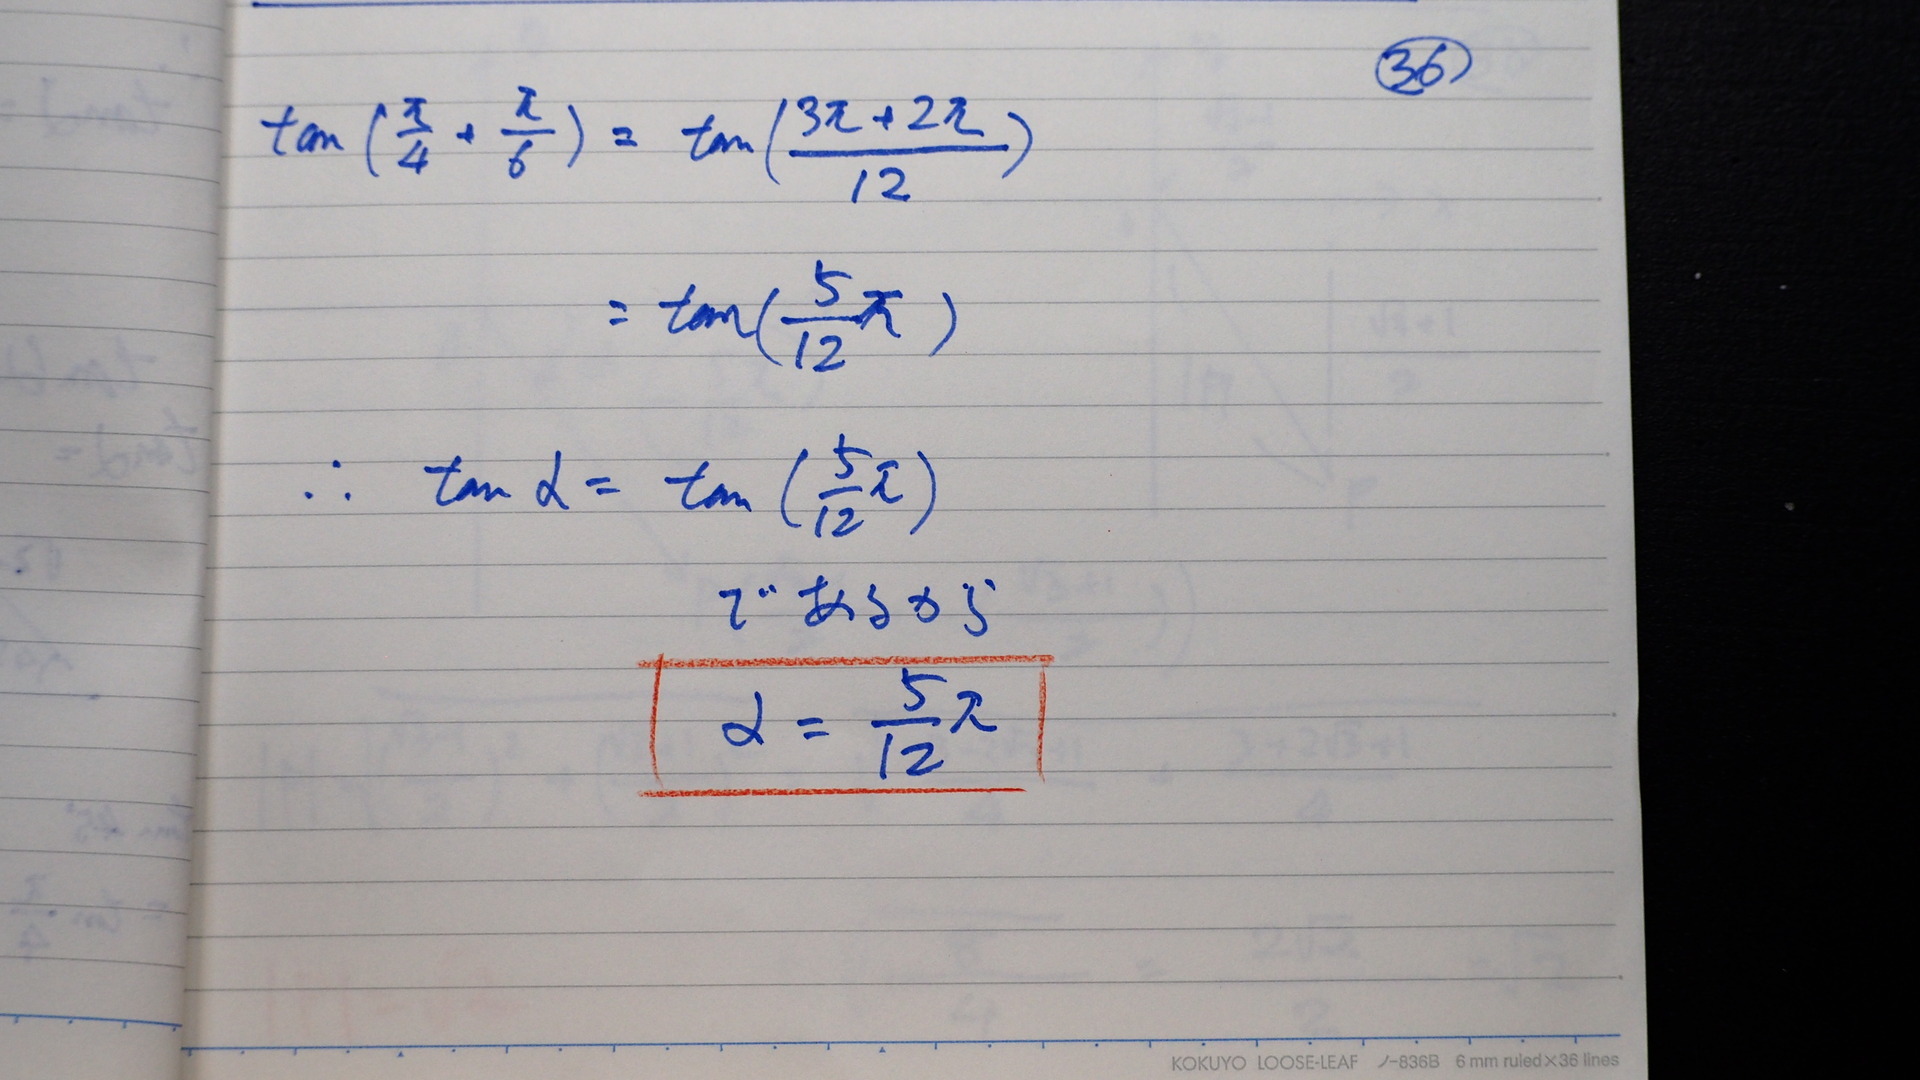 36
tan(π/4 + π/6) = tan((3π+2π)/12)
= tan(5/12 π)
∴ tan α = tan(5/12 π)
であるから
α = 5/12 π
KOKUYO LOOSE-LEAF ノ-836B 6 mm ruled×36 lines